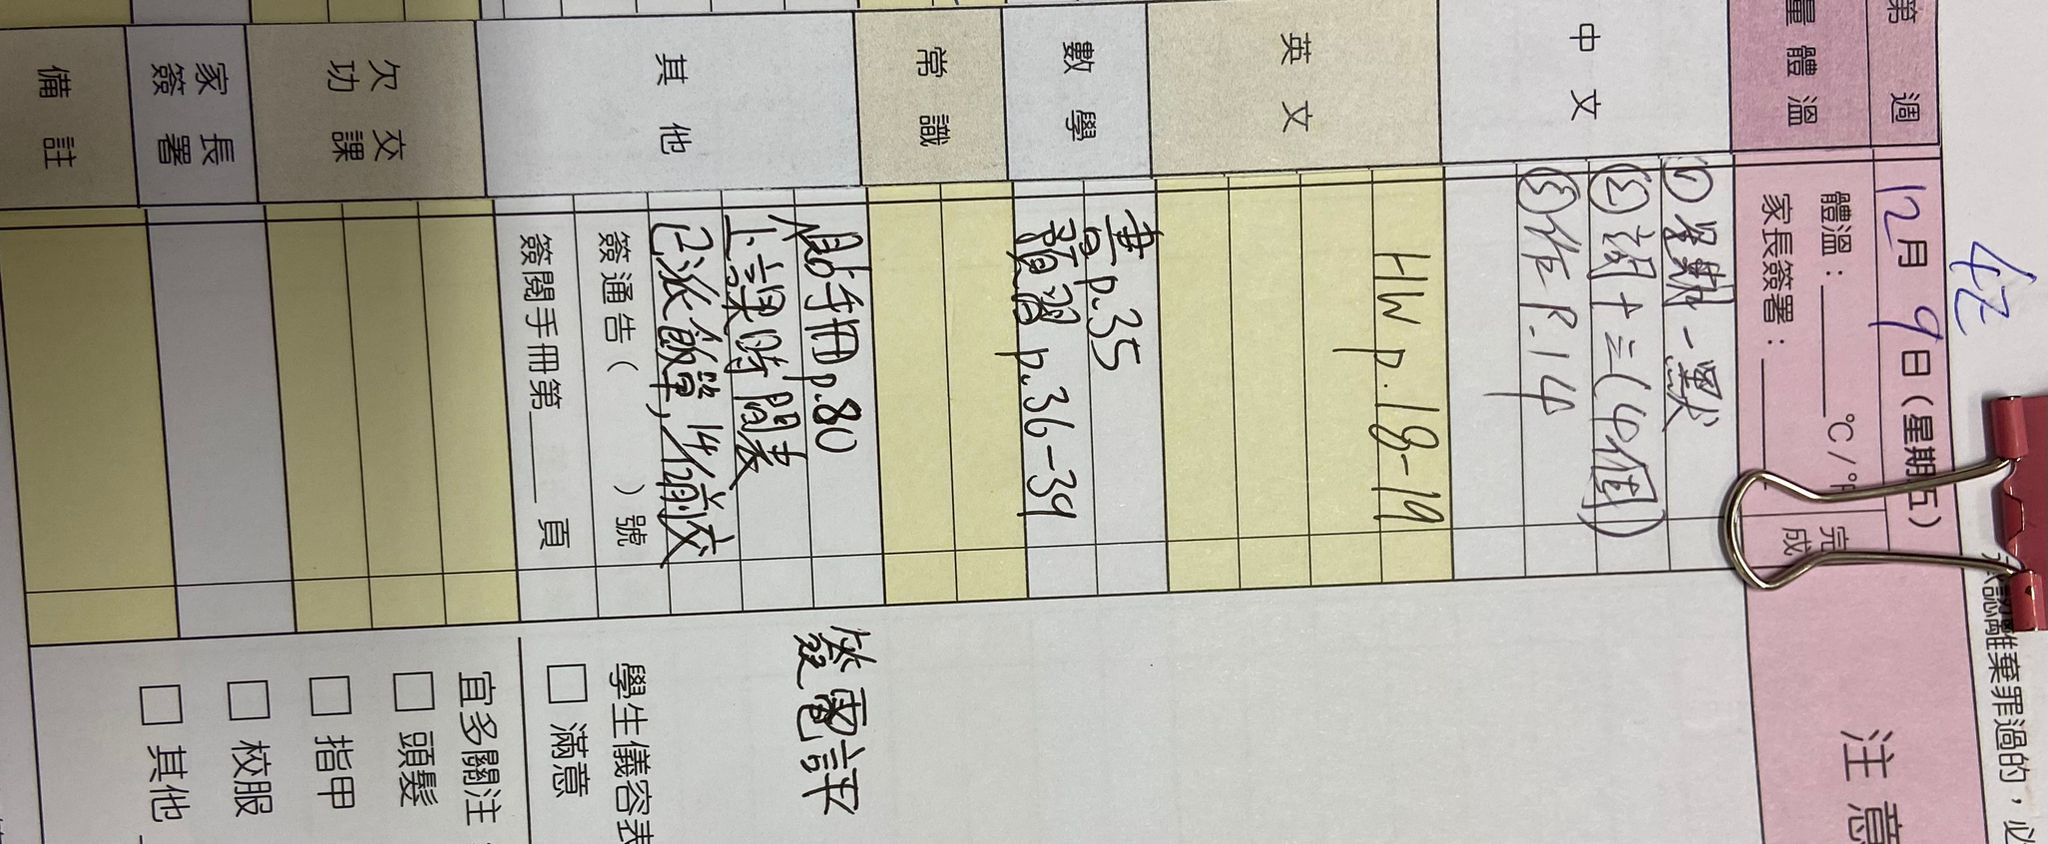 4E
第 週
12月9日(星期五)
量體溫
體溫：______°C/°F
家長簽署：______
完成
注意
中文
①星期一默
②詞十三(4個)
③作P.14
英文
HW p.18-19
數學
書p.35
預習p.36-39
常識
其他
貼手冊p.80
上課時間表
已派飯單,14/12前交
簽通告(      )號
簽閱手冊第____頁
欠交功課
家長簽署
備註
簽電評
學生儀容表
□ 滿意
宜多關注
□ 頭髮
□ 指甲
□ 校服
□ 其他
認離棄罪過的，必